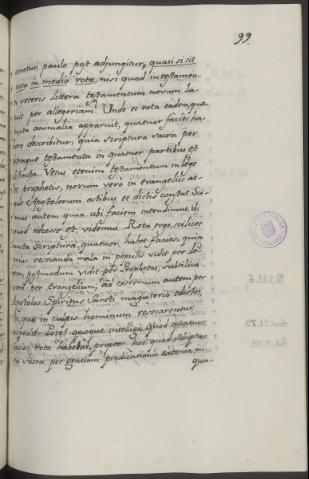 99.
aretur, paulo post adjungitur, quasi si sit
rota in medio rotæ, nisi quod in testamen-
ti veteris littera testamentum novum la-
uit per allegoriam. Unde et rota eadem quæ
iuxta animalia apparuit, quatuor facies ha-
describitur, quia scriptura sacra per
utraque testamenta in quatuor partibus est
Vetus etenim testamentum in Lege
et Prophetis, novum vero in evangeliis at-
Apostolorum actibus et dictis constat. Sci-
mus autem quia ubi faciem intendimus, ibi
quod necesse est, videmus. Rota ergo, scilicet
sacra Scriptura, quatuor habet facies, quia
resecanda mala in populis vidit per Le-
gem, postmodum vidit per Prophetas, subtilius
per Evangelium, ad extremum autem per
Apostolos Spiritus Sancti magisterio edoctos,
quæ in culpis hominum resecarentur,
Potest quoque intelligi quod quatuor
facies rota habebat, propter hoc quod Scriptu-
ra sacra per gratiam predicationis extensa, in
qua-